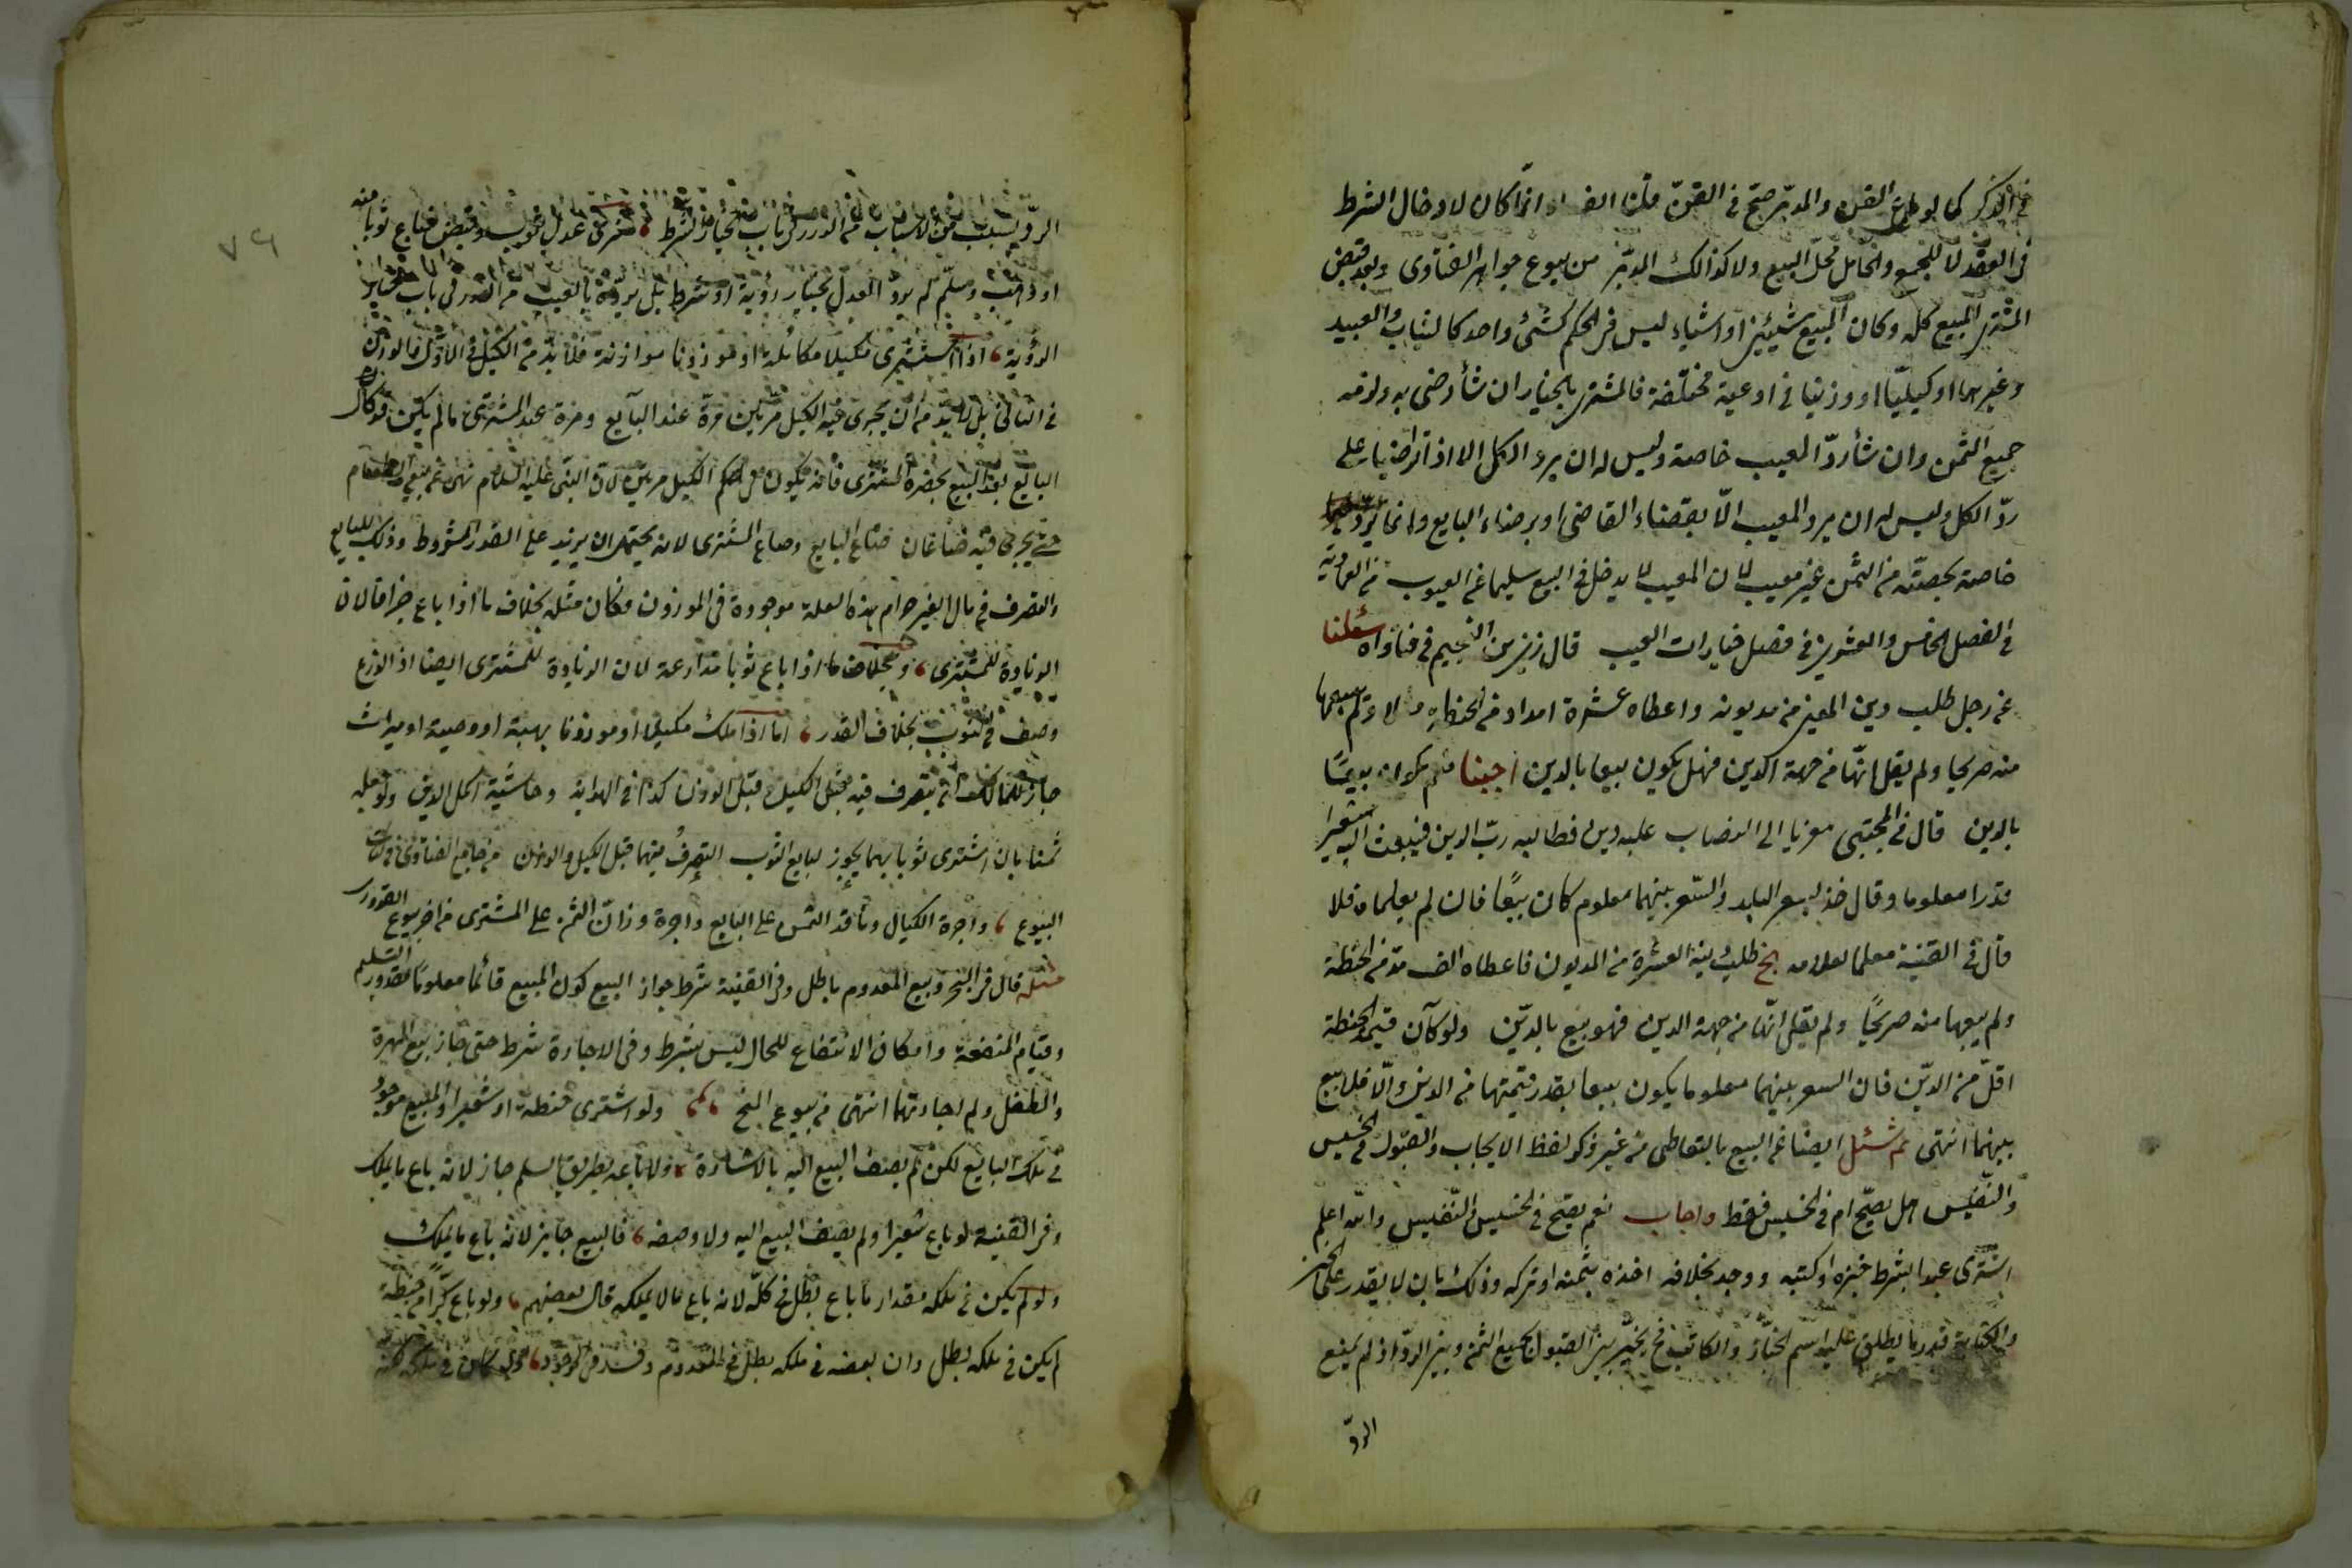 في الذكر كما لو باع القن والمدبر صح في القن قلنا الفساد انما كان لادخال الشرط
في العقد لا للجمع والحامل محل البيع ولا كذلك المدبر من بيوع جواهر الفتاوى وبعد قبض
المشترى المبيع كله وكان المبيع شيئين او اشياء ليس في الحكم كشئ واحد كالثياب والعبيد
وغيرهما او كيليا او وزنيا في اوعية مختلفة فالمشترى بالخيار ان شأ رضى به ولزمه
جميع الثمن وان شأ ردّ المعيب خاصة وليس له ان يرد الكل الا اذا تراضيا على
ردّ الكل وليس له ان يرد المعيب الّا بقضاء القاضى او برضاء البايع وانما يردّ
خاصة بحصته من الثمن غير معيب لان المعيب لا يدخل في البيع سليما عن العيوب من العمادية
في الفصل الخامس والعشرين في فصل خيارات العيب قال زين بن النجيم في فتاواه سئلنا
عن رجل طلب دين المعين من مديونه واعطاه عشرة امداد من الحنطة ولم يبعها
منه صريحا ولم يقل انّها من جهة الدين فهل يكون بيعا بالدين اجبنا نعم يكون بيعًا
بالدين قال في المجتبى معزيا الى النصاب عليه دين فطالبه ربّ الدين فبعث اليه شعيرا
قدرا معلوما وقال خذ بسعر البلد والسّعر بينهما معلوم كان بيعًا فان لم يعلماه فلا
قال في القنية معلما لعلامة بخ طلب منه العشرة من المديون فاعطاه الف مدّ من الحنطة
ولم يبعها منه صريحًا ولم يقل انّها من جهة الدين فهو بيع بالديّن ولو كان قيمة الحنطة
اقلّ من الديّن فان السعر بينهما معلوما يكون بيعا بقدر قيمتها من الدين والّا فلا بيع
بينهما انتهى ثم سئل ايضا عن البيع بالتعاطى من غير ذكر لفظ الايجاب والقبول في الخسيس
والنّفيس هل يصحّ ام في الخسيس فقط واجاب نعم يصح في الخسيس والنّفيس والله اعلم
اشترى عبدا بشرط خبزه او كتبه ووجد بخلافه اخذه بثمنه او تركه وذلك بان لا يقدر على الخبز
والكتابة قدر ما يطلق عليه اسم الخبّاز والكاتب فح يخيّر بين القبول بجميع الثمن وبين الردّ اذ لم يمنع
الردّ
٧٩
الردّ بسبب من الاسباب من الدرر في باب خيار الشرط شرى عدل ثوب وقبض فباع ثوبا منه
او وهب وسلّم لم يردّ العدل بخيار رؤية او شرط بل يردّه بالعيب من الدرر في باب خيار
الرؤية اذا اشترى مكيلا مكايلة او موزونا موازنة فلا بدّ من الكيل في الاوّل والوزن
في الثاني بل لا بدّ من ان يجرى فيه الكيل مرتين مرّة عند البايع ومرة عند المشترى ما لم يكن قد كال
البايع بعد البيع بحضرة المشترى فانه يكون في حكم الكيل مرتين لان النبي عليه السلام نهى عن بيع الطعام
حتى يجرى فيه صاعان صاع البايع وصاع المشترى لانه يحتمل ان يزيد على القدر المشروط وذلك للبايع
والتصرف في مال الغير حرام وهذه العلة موجودة في الموزون فكان مثله بخلاف ما اذا باع جزافا لان
الزيادة للمشترى وبخلاف ما اذا باع ثوبا مذارعة لان الزيادة للمشترى ايضا اذ الذرع
وصف في الثوب بخلاف القدر اما اذا ملك مكيلا او موزونا بهبة او وصية او ميراث
جاز للمالك ان يتصرف فيه قبل الكيل وقبل الوزن كذا في الهداية وحاشية اكمل الدين ولو جعله
ثمنا بان اشترى ثوبا بهما يجوز لبايع الثوب التصرف فيهما قبل الكيل والوزن من جامع الفتاوى في كتاب
البيوع واجرة الكيال وناقد الثمن على البايع واجرة وزان الثمن على المشترى من اخر بيوع القدورى
مسئلة قال في البحر وبيع المعدوم باطل وفي القنية شرط جواز البيع كون المبيع قائما معلوما مقدور التسليم
وقيام المنفعة وامكان الانتفاع للحال ليس بشرط وفي الاجارة شرط حتى جاز بيع المهرة
والطفل ولم اجارتهما انتهى من بيوع المنح ولو اشترى حنطة او شعيرا والمبيع موجود
في ملك البايع لكن لم يضف البيع اليه بالاشارة ولا باعه بطريق السلم جاز لانه باع ما يملك
وفي القنية لو باع شعيرا ولم يضف البيع اليه ولا وصفه فالبيع جايز لانه باع ما يملك
ولو لم يكن في ملكه مقدار ما باع بطل في كلّه لانه باع ما لا يملكه قال بعضهم ولو باع كرّا من حنطة
لم يكن في ملكه بطل وان بعضه في ملكه بطل في المعدوم وفسد في الموجود ولو كان في ملكه لكنه